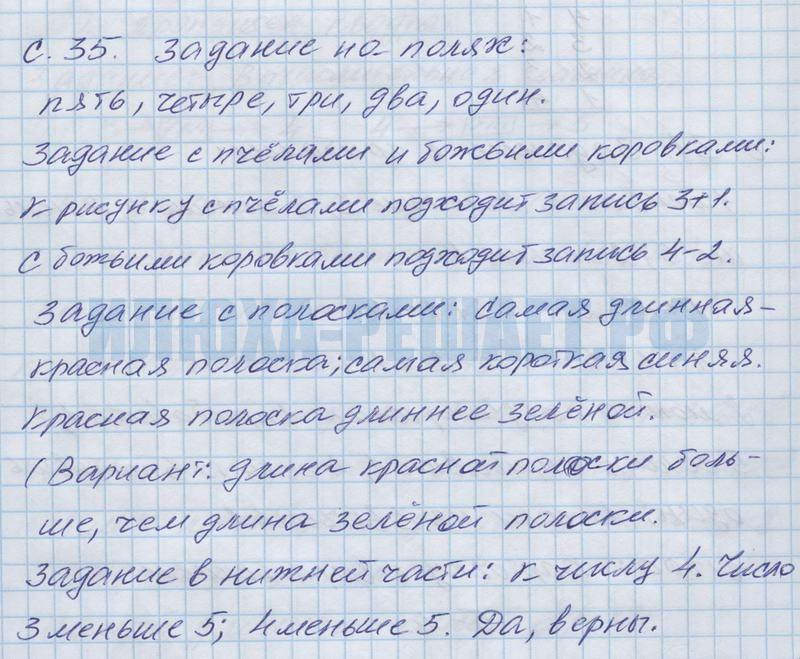 с. 35. Задание на полях:
пять, четыре, три, два, один.
Задание с пчёлами и божьими коровками:
К рисунку с пчёлами подходит запись 3+1.
С божьими коровками подходит запись 4-2.
Задание с полосками: самая длинная-
красная полоска; самая короткая синяя.
Красная полоска длиннее зелёной.
(Вариант: длина красной полоски боль-
ше, чем длина зелёной полоски.
Задание в нижней части: к числу 4. Число
3 меньше 5; 4 меньше 5. Да, верны.
ИЛЮХА-РЕШАЕТ.РФ